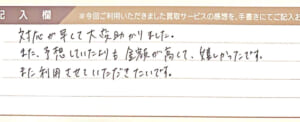 記入欄 ※今回ご利用いただきました買取サービスの感想を、手書きにてご記入お
対応が早くて大変助かりました。
また、予想していたよりも金額が高くて、嬉しかったです。
また利用させていただきたいです。